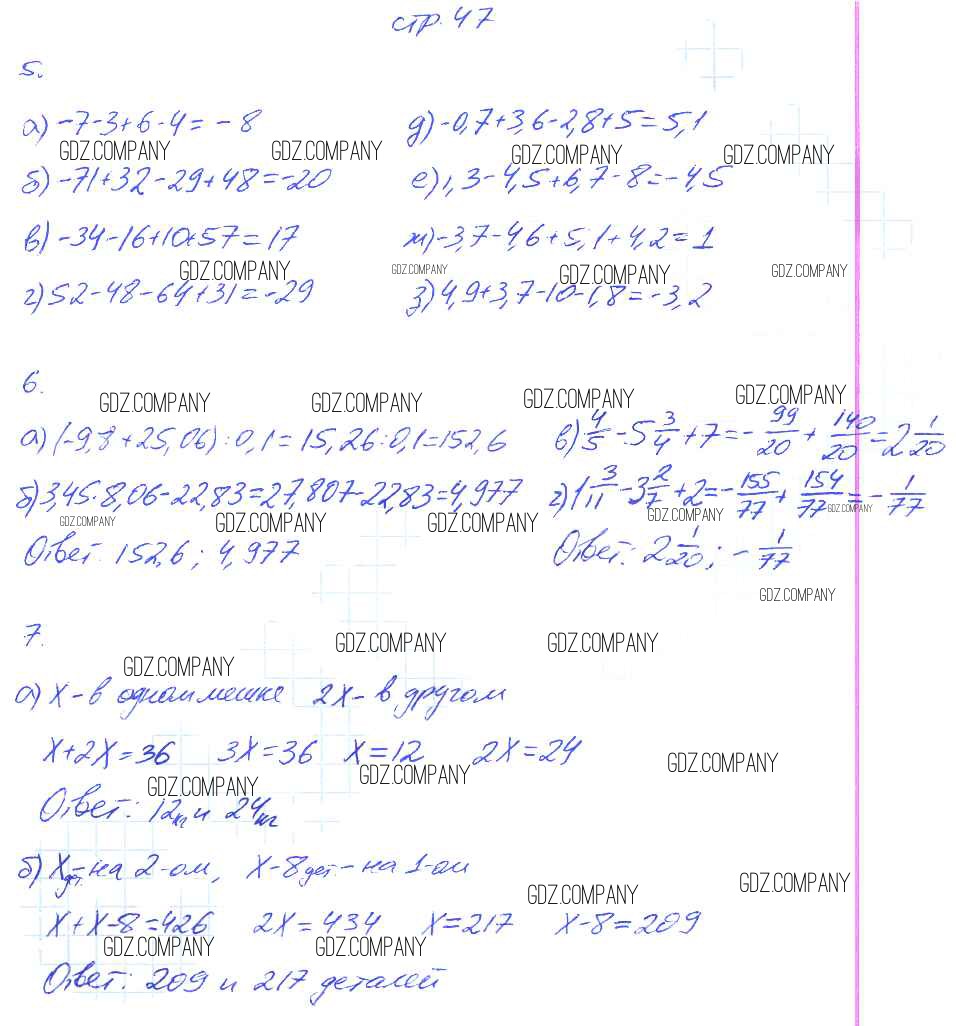 стр. 47
5.
а) -7-3+6-4 = -8
д) -0,7+3,6-2,8+5=5,1
GDZ.COMPANY GDZ.COMPANY GDZ.COMPANY GDZ.COMPANY
б) -71+32-29+48=-20
е) 1,3-4,5+6,7-8=-4,5
в) -34-16+10+57=17
ж) -3,7-4,6+5,1+4,2=1
GDZ.COMPANY GDZ.COMPANY GDZ.COMPANY GDZ.COMPANY
г) 52-48-64+31=-29
з) 4,9+3,7-10-1,8=-3,2
6.
GDZ.COMPANY GDZ.COMPANY GDZ.COMPANY GDZ.COMPANY
а) (-9,8+25,06):0,1=15,26:0,1=152,6
в) 4/5 - 5 3/4 + 7 = - 99/20 + 140/20 = 2 1/20
б) 3,45·8,06-22,83=27,807-22,83=4,977
г) 1 3/11 - 3 2/7 + 2 = - 155/77 + 154/77 = - 1/77
GDZ.COMPANY GDZ.COMPANY GDZ.COMPANY GDZ.COMPANY GDZ.COMPANY
Ответ: 152,6; 4,977
Ответ: 2 1/20; - 1/77
GDZ.COMPANY
7.
GDZ.COMPANY GDZ.COMPANY GDZ.COMPANY
а) х - в одном мешке 2х - в другом
х+2х=36 3х=36 х=12 2х=24
GDZ.COMPANY GDZ.COMPANY GDZ.COMPANY
Ответ: 12кг и 24кг
б) х дет. - на 2-ом, х-8 дет. - на 1-ом
GDZ.COMPANY GDZ.COMPANY
х+х-8=426 2х=434 х=217 х-8=209
GDZ.COMPANY GDZ.COMPANY
Ответ: 209 и 217 деталей